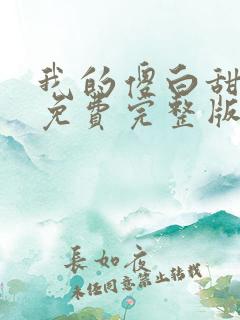 我的傻白甜
免費完整版
長如夜
未经同意禁止转载